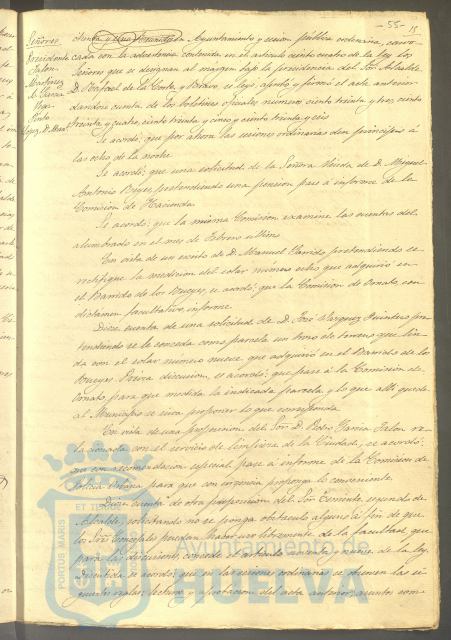 - 55 - 15
Señores
Presidente
Jalon
Martinez
M. Garcia
Vega
Pinto
Lopez, D. Man.
y una reunido en Ayuntamiento y sesion publica ordinaria, convo-
cada con la advertencia contenida en el articulo ciento cuatro de la ley los
Señores que se designan al margen bajo la presidencia del Sor Alcalde
D. Rafael de la Corte y Bravo, se leyó, aprobó y firmó el acta anterior
dandose cuenta de los boletines oficiales numeros ciento treinta y tres, ciento
treinta y cuatro, ciento treinta y cinco y ciento treinta y seis
Se acordó; que por ahora las sesiones ordinarias den principio á
las ocho de la noche
Se acordó; que una solicitud de la Señora Viuda de D. Miguel
Antonio pretendiendo una pension pase á informe de la
Comision de Hacienda
Se acordó; que la misma Comision examine las cuentas del
alumbrado en el mes de Febrero ultimo
En vista de un escrito de D. Manuel Garrido pretendiendo se
rectifique la medicion del solar numero ocho que adquirió en
el Barrido de los Bueyes, se acordó; que la Comision de Ornato, con
dictamen facultativo, informe
Diose cuenta de una solicitud de D. José Vazquez Quintero pre-
tendiendo se le conceda como parcela un trozo de terreno que lin-
da con el solar numero nueve que adquirió en el Barrido de los
Bueyes. Previa discusion, se acordó; que pase á la Comision de
Ornato, para que medida la indicada parcela y lo que alli quede
al Municipio se sirva proponer lo que corresponda
En vista de una proposicion del Sor D. Pedro Garcia Jalon re-
lacionada con el servicio de limpieza de la Ciudad, se acordó;
que con recomendacion especial pase á informe de la Comision de
Policia Urbana para que con urgencia proponga lo conveniente
Diose cuenta de otra proposicion del Sor Teniente segundo de
Alcalde, solicitando no se ponga obstaculo alguno á fin de que
los Sores Concejales puedan hacer uso libremente de la facultad que
para las discusiones, concede el articulo noventa y nueve de la ley.
Discutida se acordó; que en las sesiones ordinarias se observen las si-
guientes reglas: lectura y aprobacion del acta anterior; asuntos som-
PORTUS MARIS ET TE
Ayuntamiento de
HUELVA